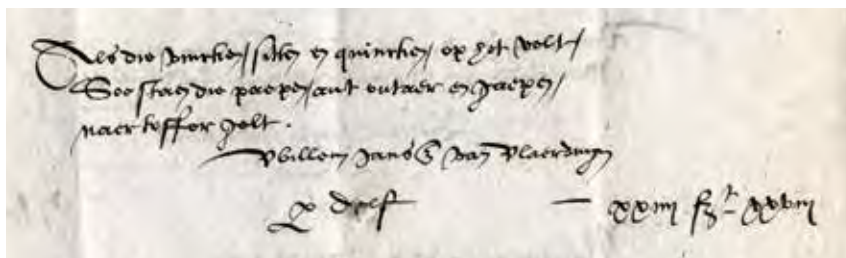 Als die vincken sitten en quincken op het velt
Soo staen die papen ant outaer en gapen
naer koffer gelt.
Willem Jansz van Vlaerdingen
Ex Delf — xxiiii xxviii